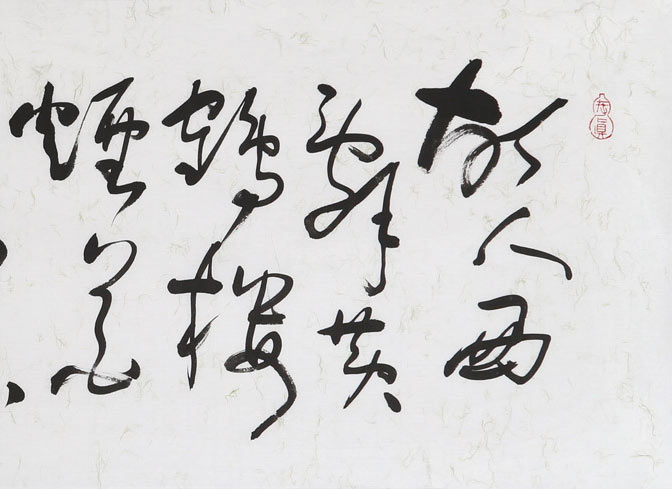 故人西
辭黄
鶴樓
煙花